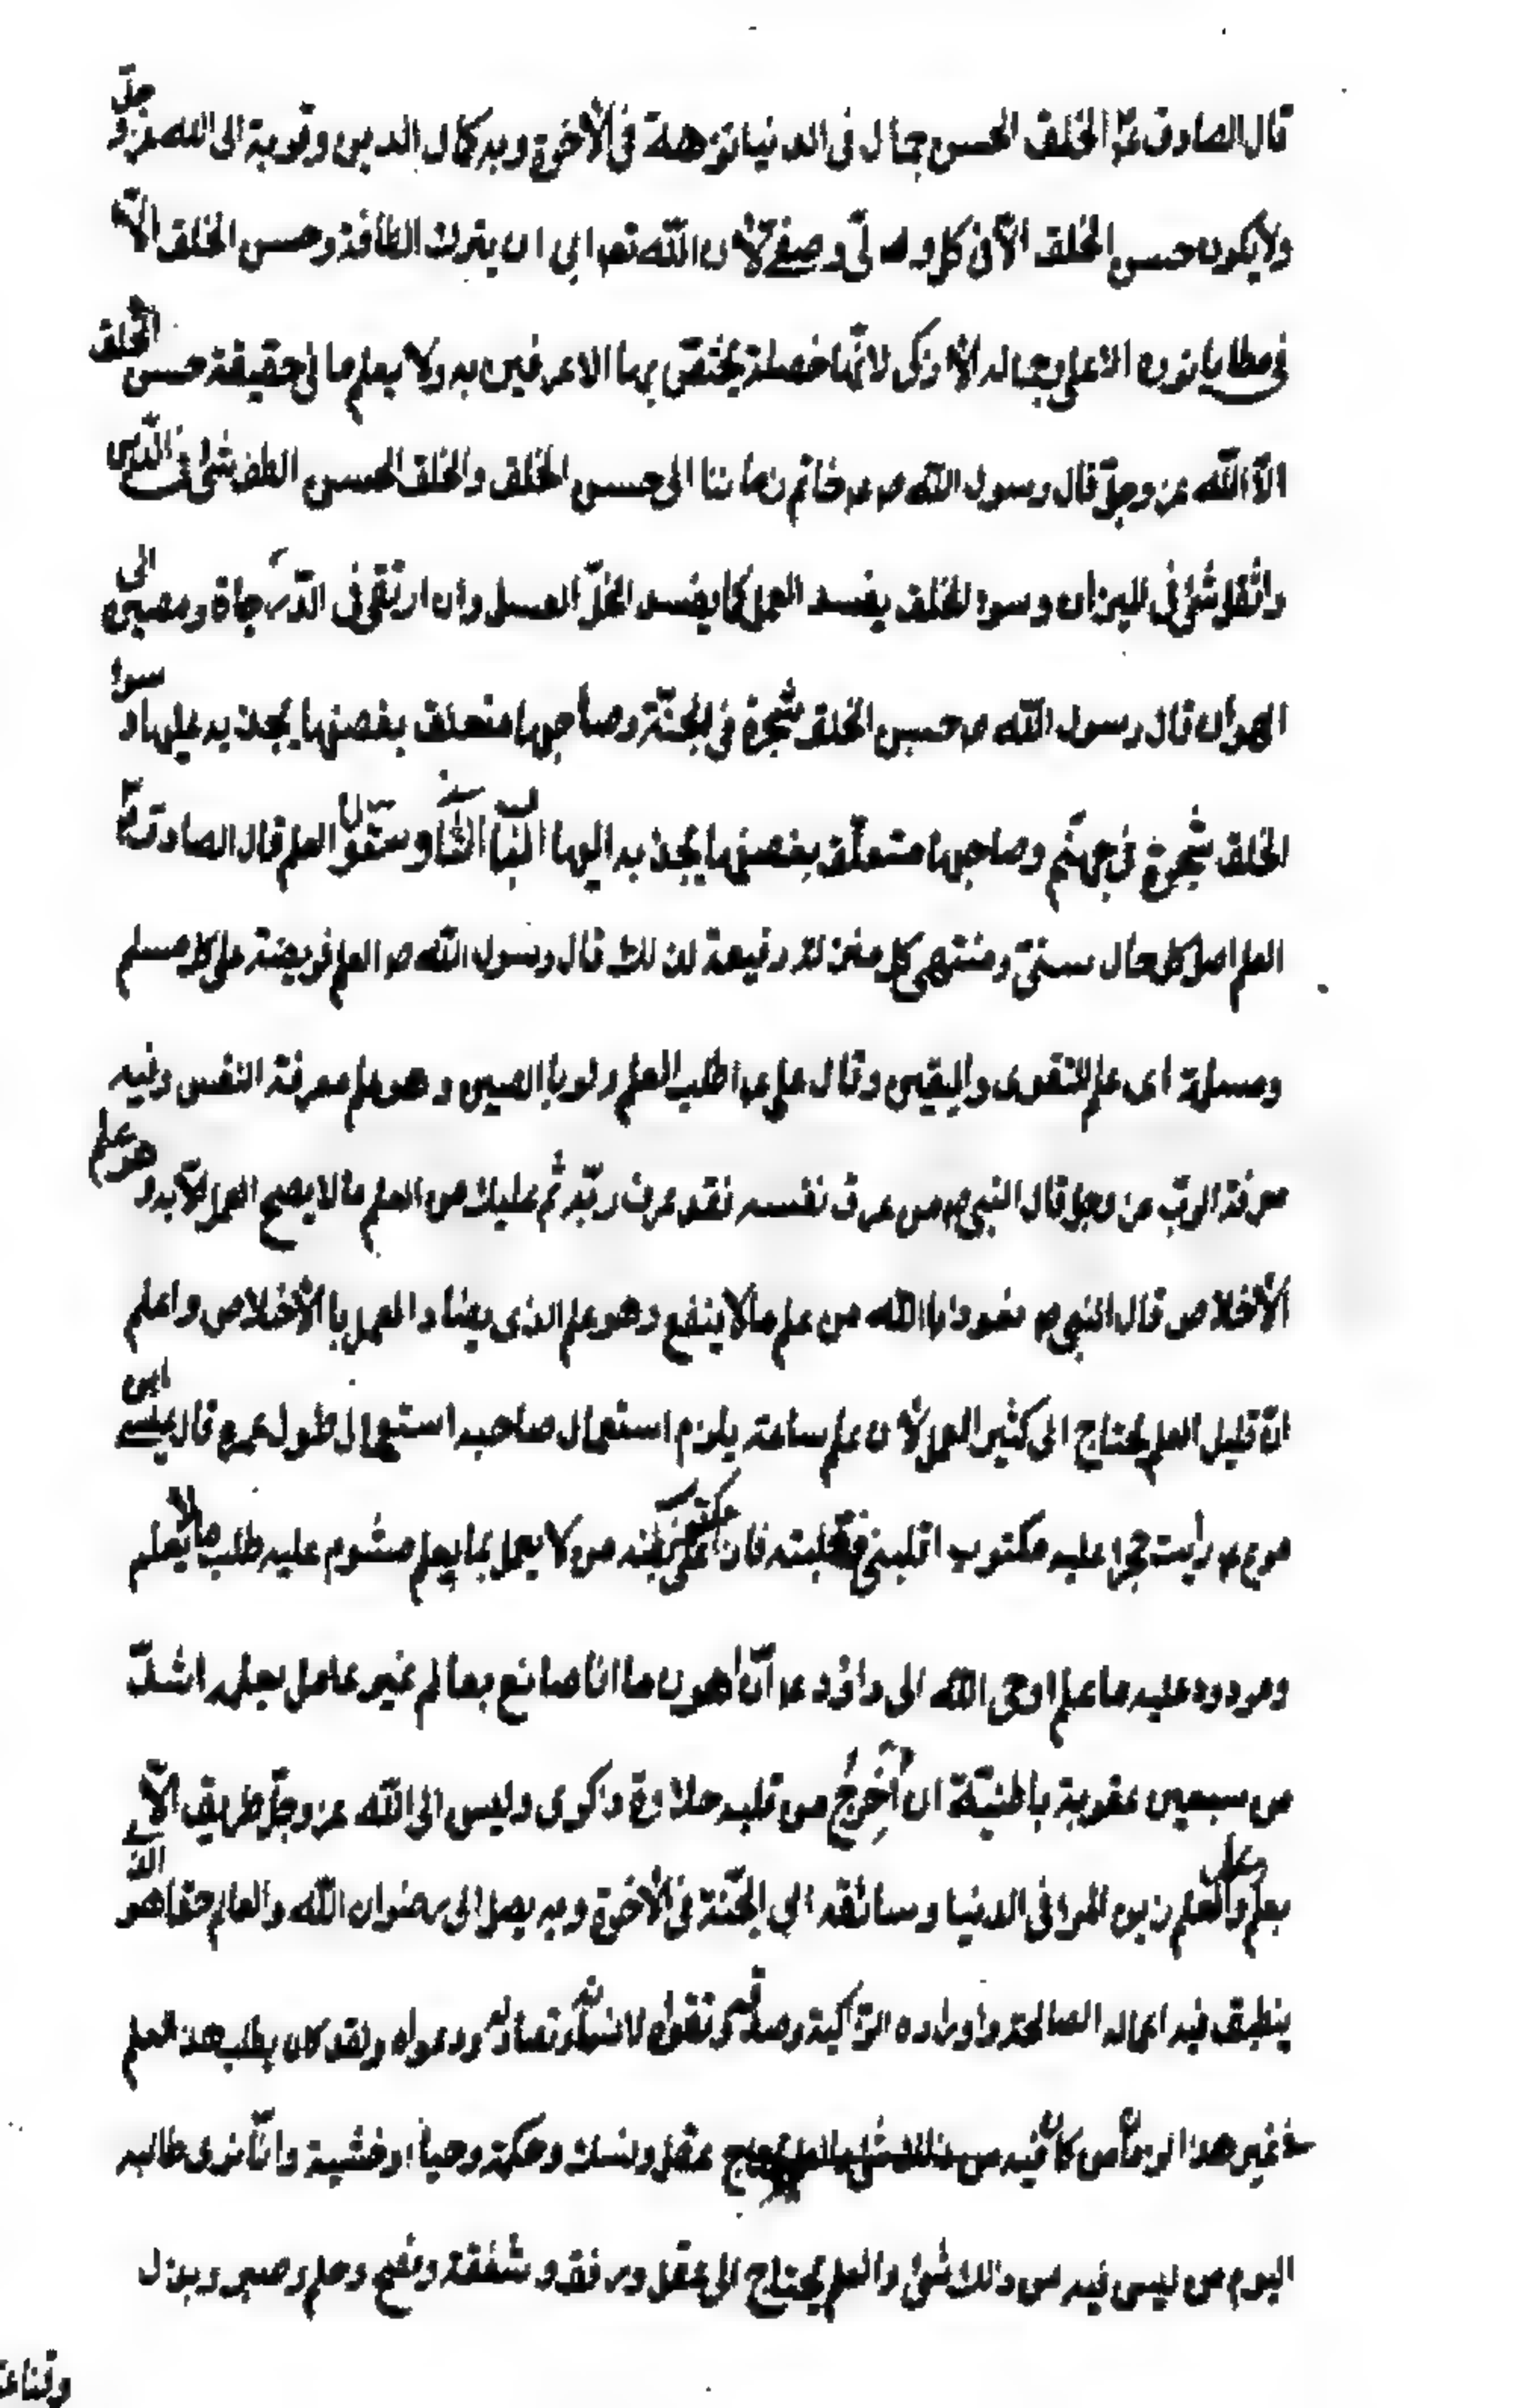 قال الصادق ع الخلق الحسن جمال فى الدنيا نزهة فى الأخرة وبه كمال الدين وقربة الى الله عز و جل
ولا يكون حسن الخلق الّا فى كل ولى وصفى لأن الله تعا ابى ان يترك الطافه وحسن الخلق الّا
فى مطايا نوره الاعلى وجماله الأزكى لانّها خصلة يختصّ بها الاعرفين به ولا يعلم ما فى حقيقة حسن الخلق
الّا الله عز وجلّ قال رسول الله ص خاتم زماننا الى حسن الخلق والخلق الحسن الطف شئ فى الدين
واثقل شئ فى الميزان وسوء الخلق يفسد العمل كما يفسد الخلّ العسل وان ارتقى فى الدّرجاة ومصيره الى
الهوان قال رسول الله ص حسن الخلق شجرة فى الجنّة وصاحبها متعلق بغصنها يجذبه عليها و سوء
الخلق شجرة فى جهنّم وصاحبها متعلّق بغصنها يجذبه اليها الباب فى العلم قال الصادق ع
العلم اصل كل حال سنىّ ومنتهى كل منزلة رفيعة لذلك قال رسول الله ص العلم فريضة على كل مسلم
ومسلمة اى علم التقوى واليقين وقال على ع اطلب العلم ولو باالصين وهو علم معرفة النفس وفيه
معرفة الربّ عز وجل قال النبى ص من عرف نفسه فقد عرف ربّه ثم عليك من العلم ما لا يصح العمل الّا به وهو علم
الأخلاص قال النبى ص نعوذ باالله من علم ما لا ينفع وهو علم الذى يضاد العمل با الأخلاص واعلم
انّ قليل العلم يحتاج الى كثير العمل لأن علم ساعة يلزم استعمال صاحبه استعمال طول عمره قال عيسى ابن
مريم ع رأيت حجرا عليه مكتوب اقلبنى فقلبته فان على بطنه مكتوب من لا يعمل بما يعلم مشوم عليه طلب ما لا يعلم
ومردود عليه ما علم اوحى الله الى داؤد ع انّ اهون ما انا صانع بعالم غير عامل بعلمه اشدّ
من سبعين عقوبة باطنيّة ان أُخرِجُ من قلبه حلاوة ذكرى وليس الى الله عز وجلّ طريق الّا
بعلم والعلم زين المرء فى الدنيا وسائقه الى الجّنة فى الأخرة وبه يصل الى رضوان الله والعالم حقا هو الذى
ينطق فيه اعماله الصالحة واوراده الزّاكية وصدقه وتقواه لا لسانه وتصاوله ودعواه ولقد كان يطلب هذ العلم
غير هذا الزمان من كان فيه عقل ونسك وحكمة وحياء وخشية وانّا نرى طالبه
اليوم من ليس فيه من ذلك شئ والعلم يحتاج الى عقل ورفق وشفقة ونصح وحلم وصبر وبذل
وقناعة